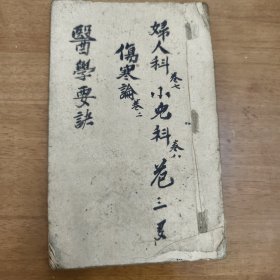 婦人科卷七小兒科卷八
傷寒論卷二
醫學要訣